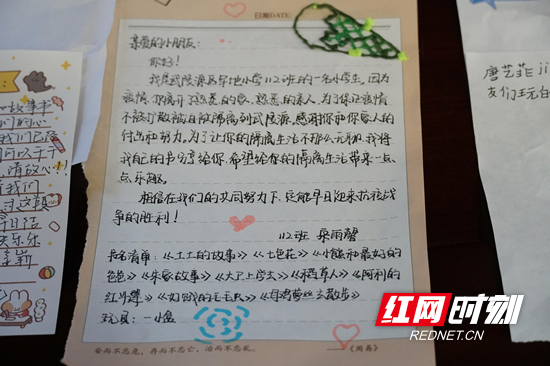 日期DATE:
亲爱的小朋友：
你好！
我是武陵源区军地小学112班的一名小学生，因为
疫情，你离开了熟悉的家、熟悉的亲人，为了保证疫情
不被扩散被召致隔离到武陵源，感谢你和你家人的
付出和努力。为了让你的隔离生活不那么无聊，我将
我自己的书分享给你，希望给你的隔离生活带来一点
点乐趣。
相信在我们的共同努力下，定能早日迎来抗疫战
争的胜利！
112班
书名清单：《土土的故事》《七色花》《小熊和最好的
爸爸》《朱家故事》《大卫上学去》《稻草人》《阿利的
红斗篷》《好饿的毛毛虫》《母鸡萝丝去散步》
玩具：一小盒
安而不忘危，存而不忘亡，治而不忘乱。
——《周易》
故事书
请放心！！
我们
唐艺菲
友们玩
红网时刻
REDNET.CN